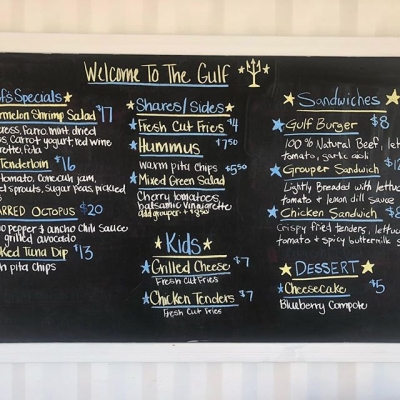 Welcome To The Gulf
Specials
Shrimp Salad $17
Farro, mint, dried
Carrot yogurt, red wine
Tenderloin $16
tomato, Conecuh jam,
sprouts, Sugar peas, pickled
Octopus $20
pepper & ancho Chili Sauce
grilled avocado
Tuna Dip $13
pita chips
Shares/Sides
Fresh Cut Fries $4
Hummus $7.50
warm pita chips
Mixed Green Salad $5.50
Cherry tomatoes,
balsamic vinaigrette
add grouper +
Kids
Grilled Cheese $7
Fresh Cut Fries
Chicken Tenders $7
Fresh Cut Fries
Sandwiches
Gulf Burger $8
100% Natural Beef,
tomato, garlic aioli
Grouper Sandwich
Lightly Breaded with
tomato & lemon dill sauce
Chicken Sandwich
Crispy fried tenders,
tomato & spicy buttermilk
Dessert
Cheesecake $5
Blueberry Compote